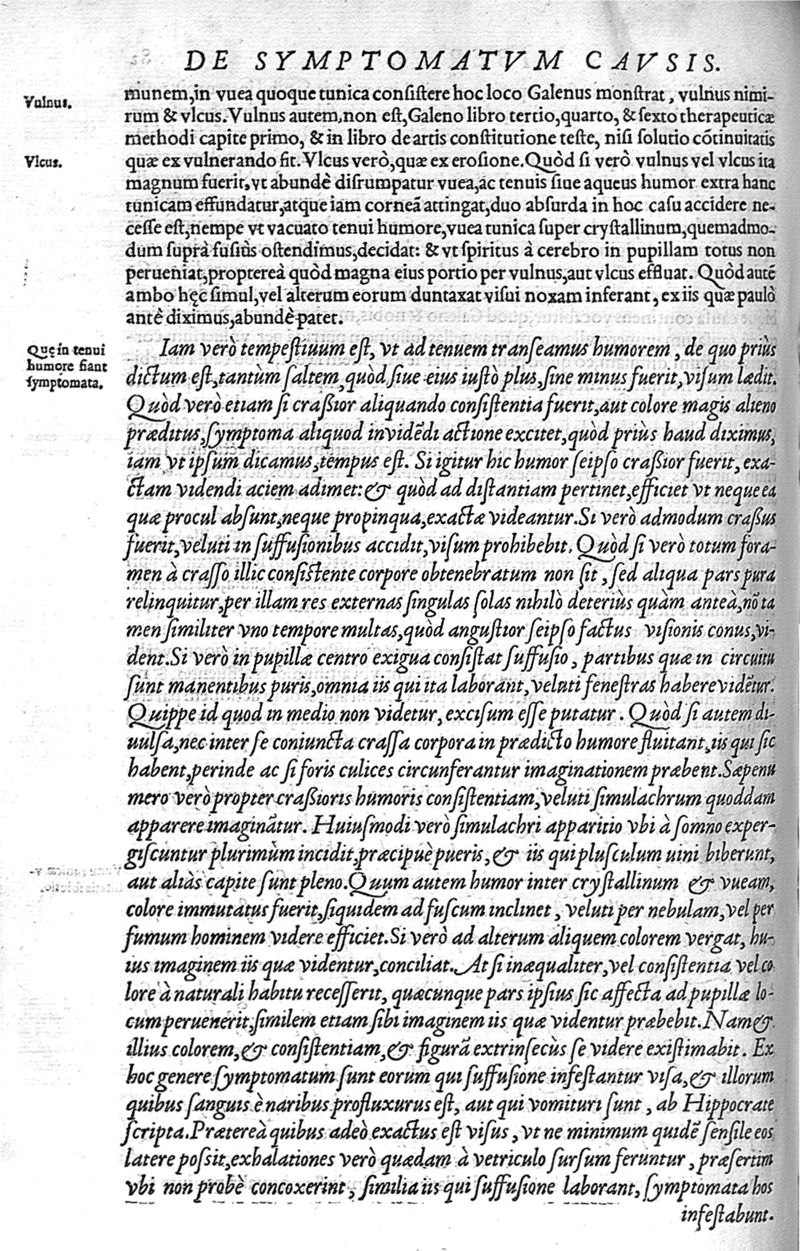 DE SYMPTOMATVM CAVSIS.
Vulnus.
munem, in vuea quoque tunica consistere hoc loco Galenus monstrat, vulnus nimi-
rum & vlcus. Vulnus autem, non est, Galeno libro tertio, quarto, & sexto therapeuticæ
methodi capite primo, & in libro de artis constitutione teste, nisi solutio cõtinuitatis
Vlcus.
quæ ex vulnerando fit. Vlcus verò, quæ ex erosione. Quòd si verò vulnus vel vlcus ita
magnum fuerit, vt abundè disrumpatur vuea, ac tenuis siue aqueus humor extra hanc
tunicam effundatur, atque iam corneã attingat, duo absurda in hoc casu accidere ne-
cesse est, nempe vt vacuato tenui humore, vuea tunica super crystallinum, quemadmo-
dum suprà fusiùs ostendimus, decidat: & vt spiritus à cerebro in pupillam totus non
perueniat, proptereà quòd magna eius portio per vulnus, aut vlcus effluat. Quòd autẽ
ambo hęc simul, vel alterum eorum duntaxat visui noxam inferant, ex iis quæ paulò
antè diximus, abundè patet.
Quę in tenui
humore fiant
symptomata.
Iam verò tempestiuum est, vt ad tenuem transeamus humorem, de quo priùs
dictum est, tantùm saltem, quòd siue eius iustò plus, sine minus fuerit, visum lædit.
Quòd verò etiam si craßior aliquando consistentia fuerit, aut colore magis alieno
præditus, symptoma aliquod in vidẽdi actione excitet, quòd priùs haud diximus,
iam vt ipsum dicamus, tempus est. Si igitur hic humor seipso craßior fuerit, exa-
ctam videndi aciem adimet: & quòd ad distantiam pertinet, efficiet vt neque ea
quæ procul absunt, neque propinqua, exactæ videantur. Si verò admodum craßus
fuerit, veluti in suffusionibus accidit, visum prohibebit. Quòd si verò totum fora-
men à crasso illic consistente corpore obtenebratum non sit, sed aliqua pars pura
relinquitur, per illam res externas singulas solas nihilò deteriùs quàm anteà, nõ ta
men similiter vno tempore multas, quòd angustior seipso factus visionis conus, vi-
dent. Si verò in pupillæ centro exigua consistat suffusio, partibus quæ in circuitu
sunt manentibus puris, omnia iis qui ita laborant, veluti fenestras habere vidẽtur.
Quippe id quod in medio non videtur, excisum esse putatur. Quòd si autem di-
uulsa, nec inter se coniuncta crassa corpora in prædicto humore fluitant, iis qui sic
habent, perinde ac si foris culices circunferantur imaginationem præbent. Sæpenu
mero verò propter craßioris humoris consistentiam, veluti simulachrum quoddam
apparere imaginãtur. Huiusmodi verò simulachri apparitio vbi à somno exper-
giscuntur plurimùm incidit, præcipuè pueris, & iis qui plusculum uini biberunt,
aut aliàs capite sunt pleno. Quum autem humor inter crystallinum & vueam,
colore immutatus fuerit, siquidem ad fuscum inclinet, veluti per nebulam, vel per
fumum hominem videre efficiet. Si verò ad alterum aliquem colorem vergat, hu-
ius imaginem iis quæ videntur, conciliat. At si inæqualiter, vel consistentia vel co
lore à naturali habitu recesserit, quæcunque pars ipsius sic affecta ad pupillæ lo-
cum peruenerit, similem etiam sibi imaginem iis quæ videntur præbebit. Nam &
illius colorem, & consistentiam, & figurã extrinsecùs se videre existimabit. Ex
hoc genere symptomatum sunt eorum qui suffusione infestantur visa, & illorum
quibus sanguis è naribus profluxurus est, aut qui vomituri sunt, ab Hippocrate
scripta. Prætereà quibus adeò exactus est visus, vt ne minimum quidẽ sensile eos
latere possit, exhalationes verò quædam à vẽtriculo sursum feruntur, præsertim
vbi non probè concoxerint, similia iis qui suffusione laborant, symptomata hos
infestabunt.